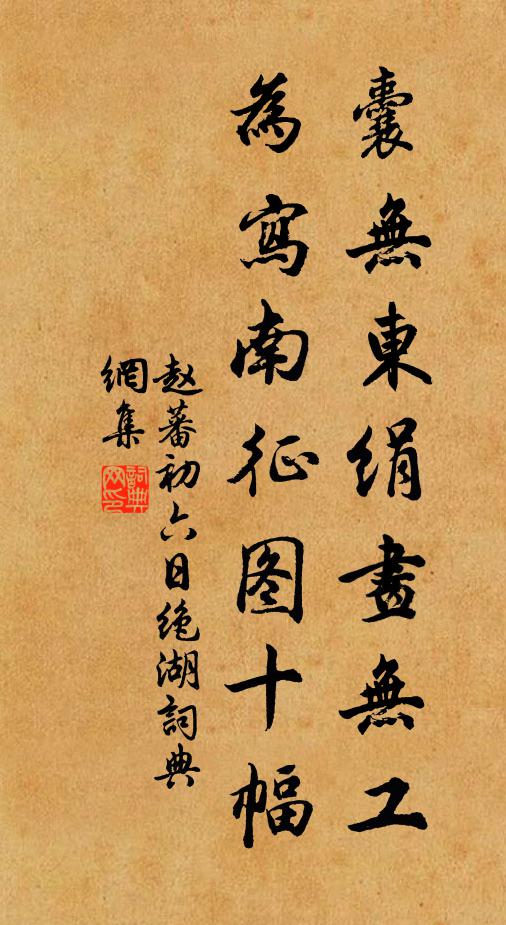 囊無東絹畫無工
為寫南征图十幅
赵蕃初六日绝湖詞典
網集
詞典
网印